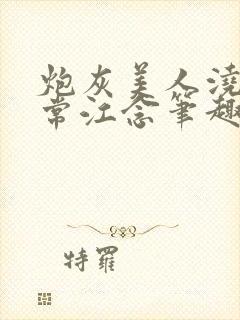 炮灰美人浇
常江念笔趣
特羅